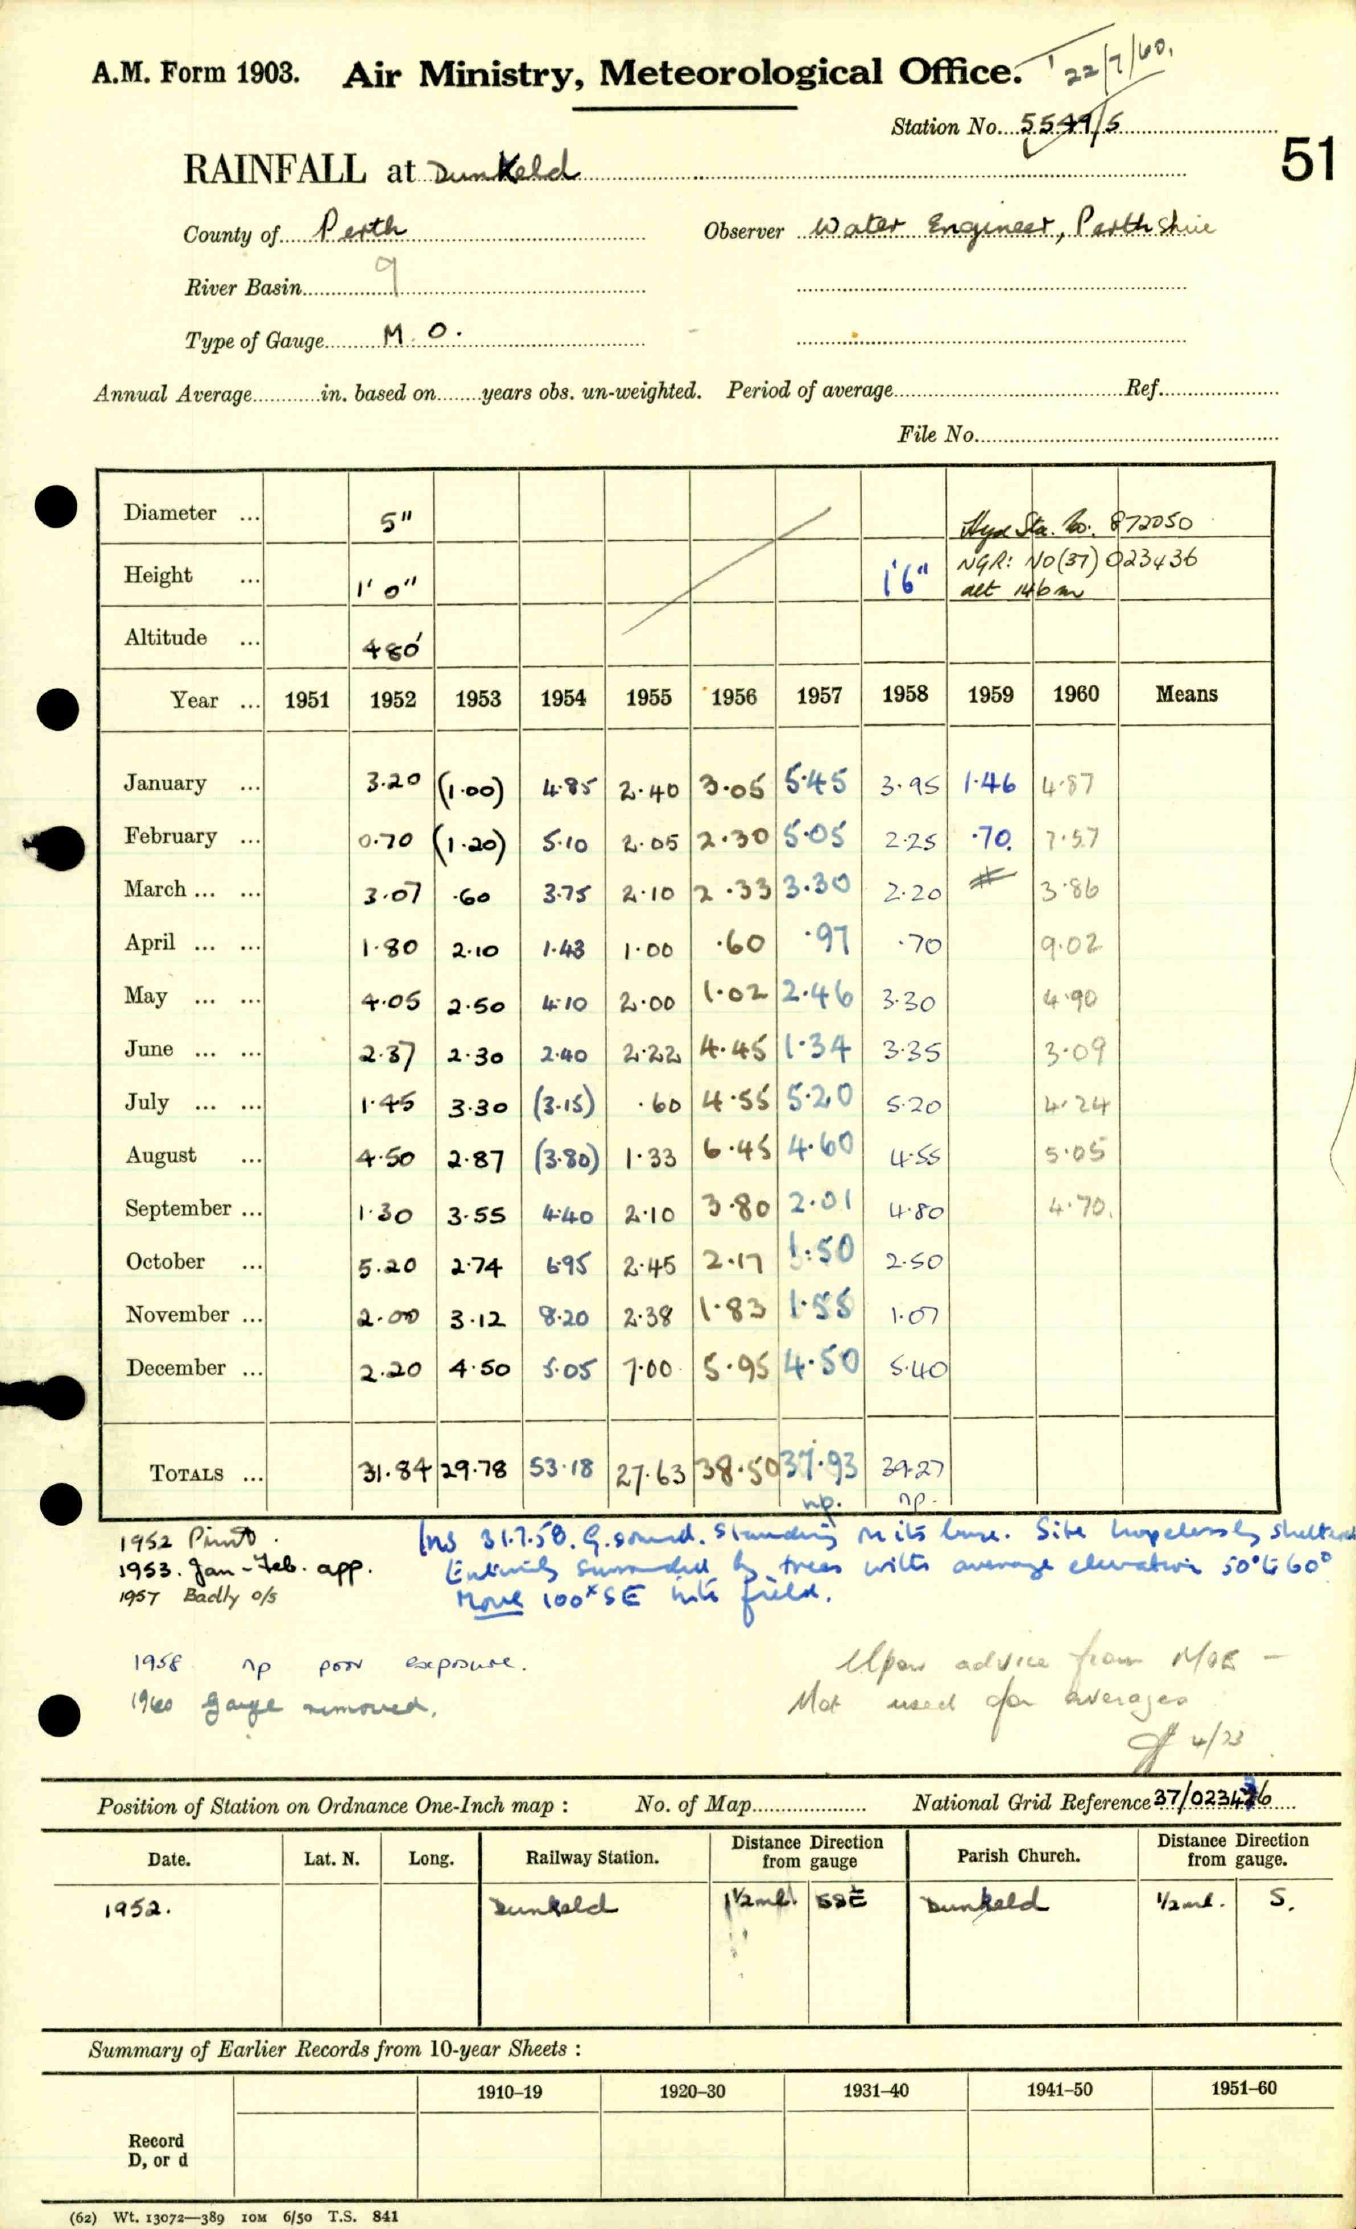 22/7/60.
A.M. Form 1903. Air Ministry, Meteorological Office.
Station No. 5549/5
51
RAINFALL at Dunkeld
County of Perth Observer Water Engineer, Perthshire
River Basin 9
Type of Gauge M.O.
Annual Average in. based on years obs. un-weighted. Period of average Ref.
File No.
Diameter ... 5" Hyd Sta. No. 872050
Height ... 1' 0" 1'6" NGR: NO(37) 023436
alt 146m
Altitude ... 480'
Year ... 1951 1952 1953 1954 1955 1956 1957 1958 1959 1960 Means
January ... 3.20 (1.00) 4.85 2.40 3.05 5.45 3.95 1.46 4.87
February ... 0.70 (1.20) 5.10 2.05 2.30 5.05 2.25 .70 7.57
March ... ... 3.07 .60 3.75 2.10 2.33 3.30 2.20 3.86
April ... ... 1.80 2.10 1.43 1.00 .60 .97 .70 9.02
May ... ... 4.05 2.50 4.10 2.00 1.02 2.46 3.30 4.90
June ... ... 2.37 2.30 2.40 2.22 4.45 1.34 3.35 3.09
July ... ... 1.45 3.30 (3.15) .60 4.55 5.20 5.20 4.24
August ... 4.50 2.87 (3.80) 1.33 6.45 4.60 4.55 5.05
September ... 1.30 3.55 4.40 2.10 3.80 2.01 4.80 4.70.
October ... 5.20 2.74 6.95 2.45 2.17 1.50 2.50
November ... 2.00 3.12 8.20 2.38 1.83 1.55 1.07
December ... 2.20 4.50 5.05 7.00 5.95 4.50 5.40
TOTALS ... 31.84 29.78 53.18 27.63 38.50 37.93 39.27
np. np.
1952 Print. Ins 31.7.58. G. sound. Standing on its base. Site hopelessly sheltered
1953. Jan-Feb. app. Entirely surrounded by trees with average elevation 50° to 60°
1957 Badly o/s Move 100x SE into field.
1958 np poor exposure. Upon advice from
1960 Gauge removed. Not used for averages
4/23
Position of Station on Ordnance One-Inch map : No. of Map National Grid Reference 37/023436
Date. Lat. N. Long. Railway Station. Distance Direction from gauge Parish Church. Distance Direction from gauge.
1952. Dunkeld 1½ml. SSE Dunkeld ½ml. S.
Summary of Earlier Records from 10-year Sheets :
1910–19 1920–30 1931–40 1941–50 1951–60
Record
D, or d
(62) Wt. 13072—389 10M 6/50 T.S. 841